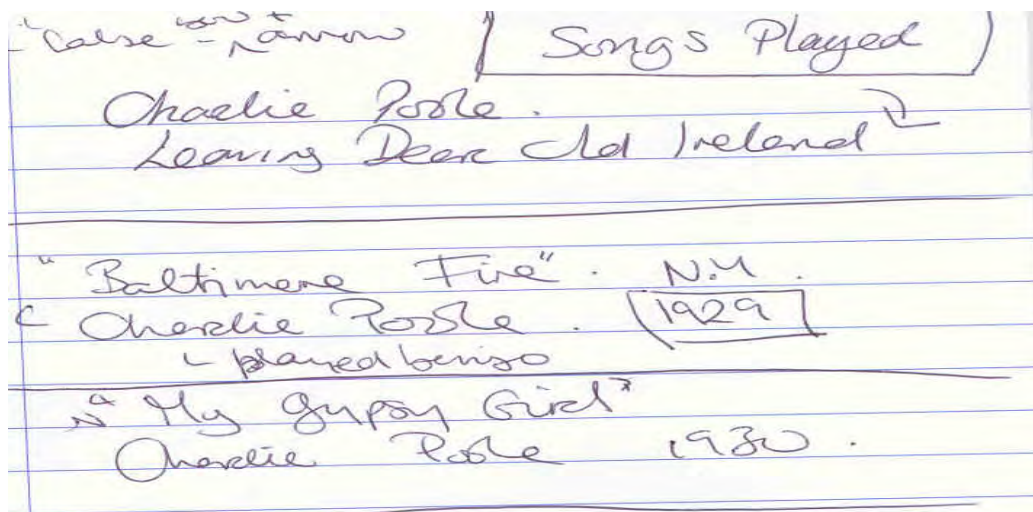 Songs Played
Charlie Poole.
Leaving Dear Old Ireland
"Baltimore Fire". N.Y.
Charlie Poole. 1929
played banjo
"My Gypsy Girl"
Charlie Poole 1930.